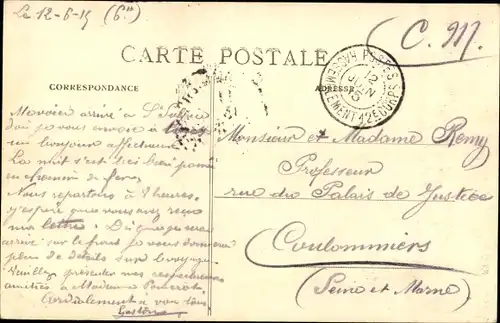 Le 12-6-15 (6h)
C. M.
CARTE POSTALE
CORRESPONDANCE
ADRESSE
12 JUIN 15
Me voici arrivé à
d'où je vous envoie à
un bonjour affectueux.
La nuit s'est très bien passée
en chemin de fer.
Nous repartons à 8 heures.
J'espère que vous avez reçu
ma lettre. Dès que je serai
arrivé sur le front je vous donnerai
plus de détails sur le voyage.
Veuillez présenter mes respectueuses
amitiés à Madame
Cordialement à vous tous
Gaston
Monsieur et Madame Remy
Professeur
rue du Palais de Justice
Coulommiers
(Seine et Marne)